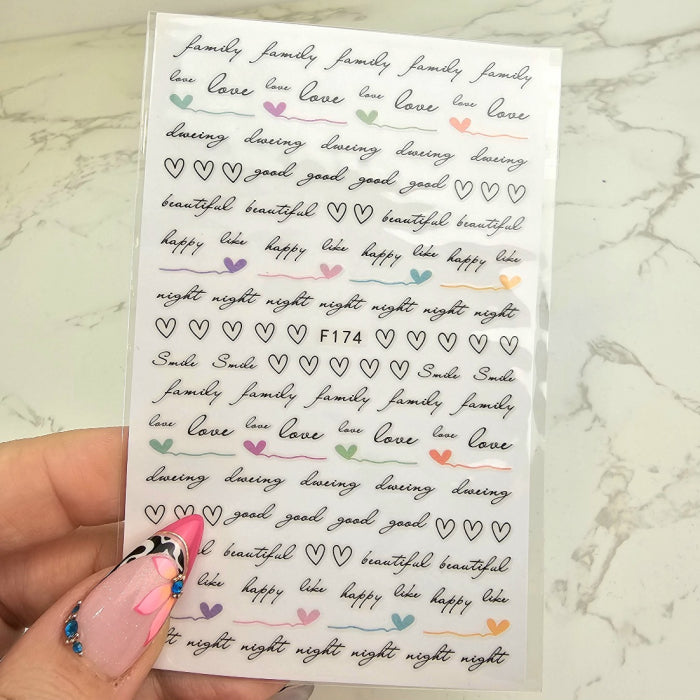 family family family family family
love love love love love love love love
dweing dweing dweing dweing dweing
good good good good
beautiful beautiful beautiful beautiful
happy like happy like happy like happy like
night night night night night night night
F174
Smile Smile Smile Smile
family family family family family
love love love love love love love love
dweing dweing dweing dweing dweing
good good good good
beautiful beautiful beautiful
like happy like happy like happy like
night night night night night night